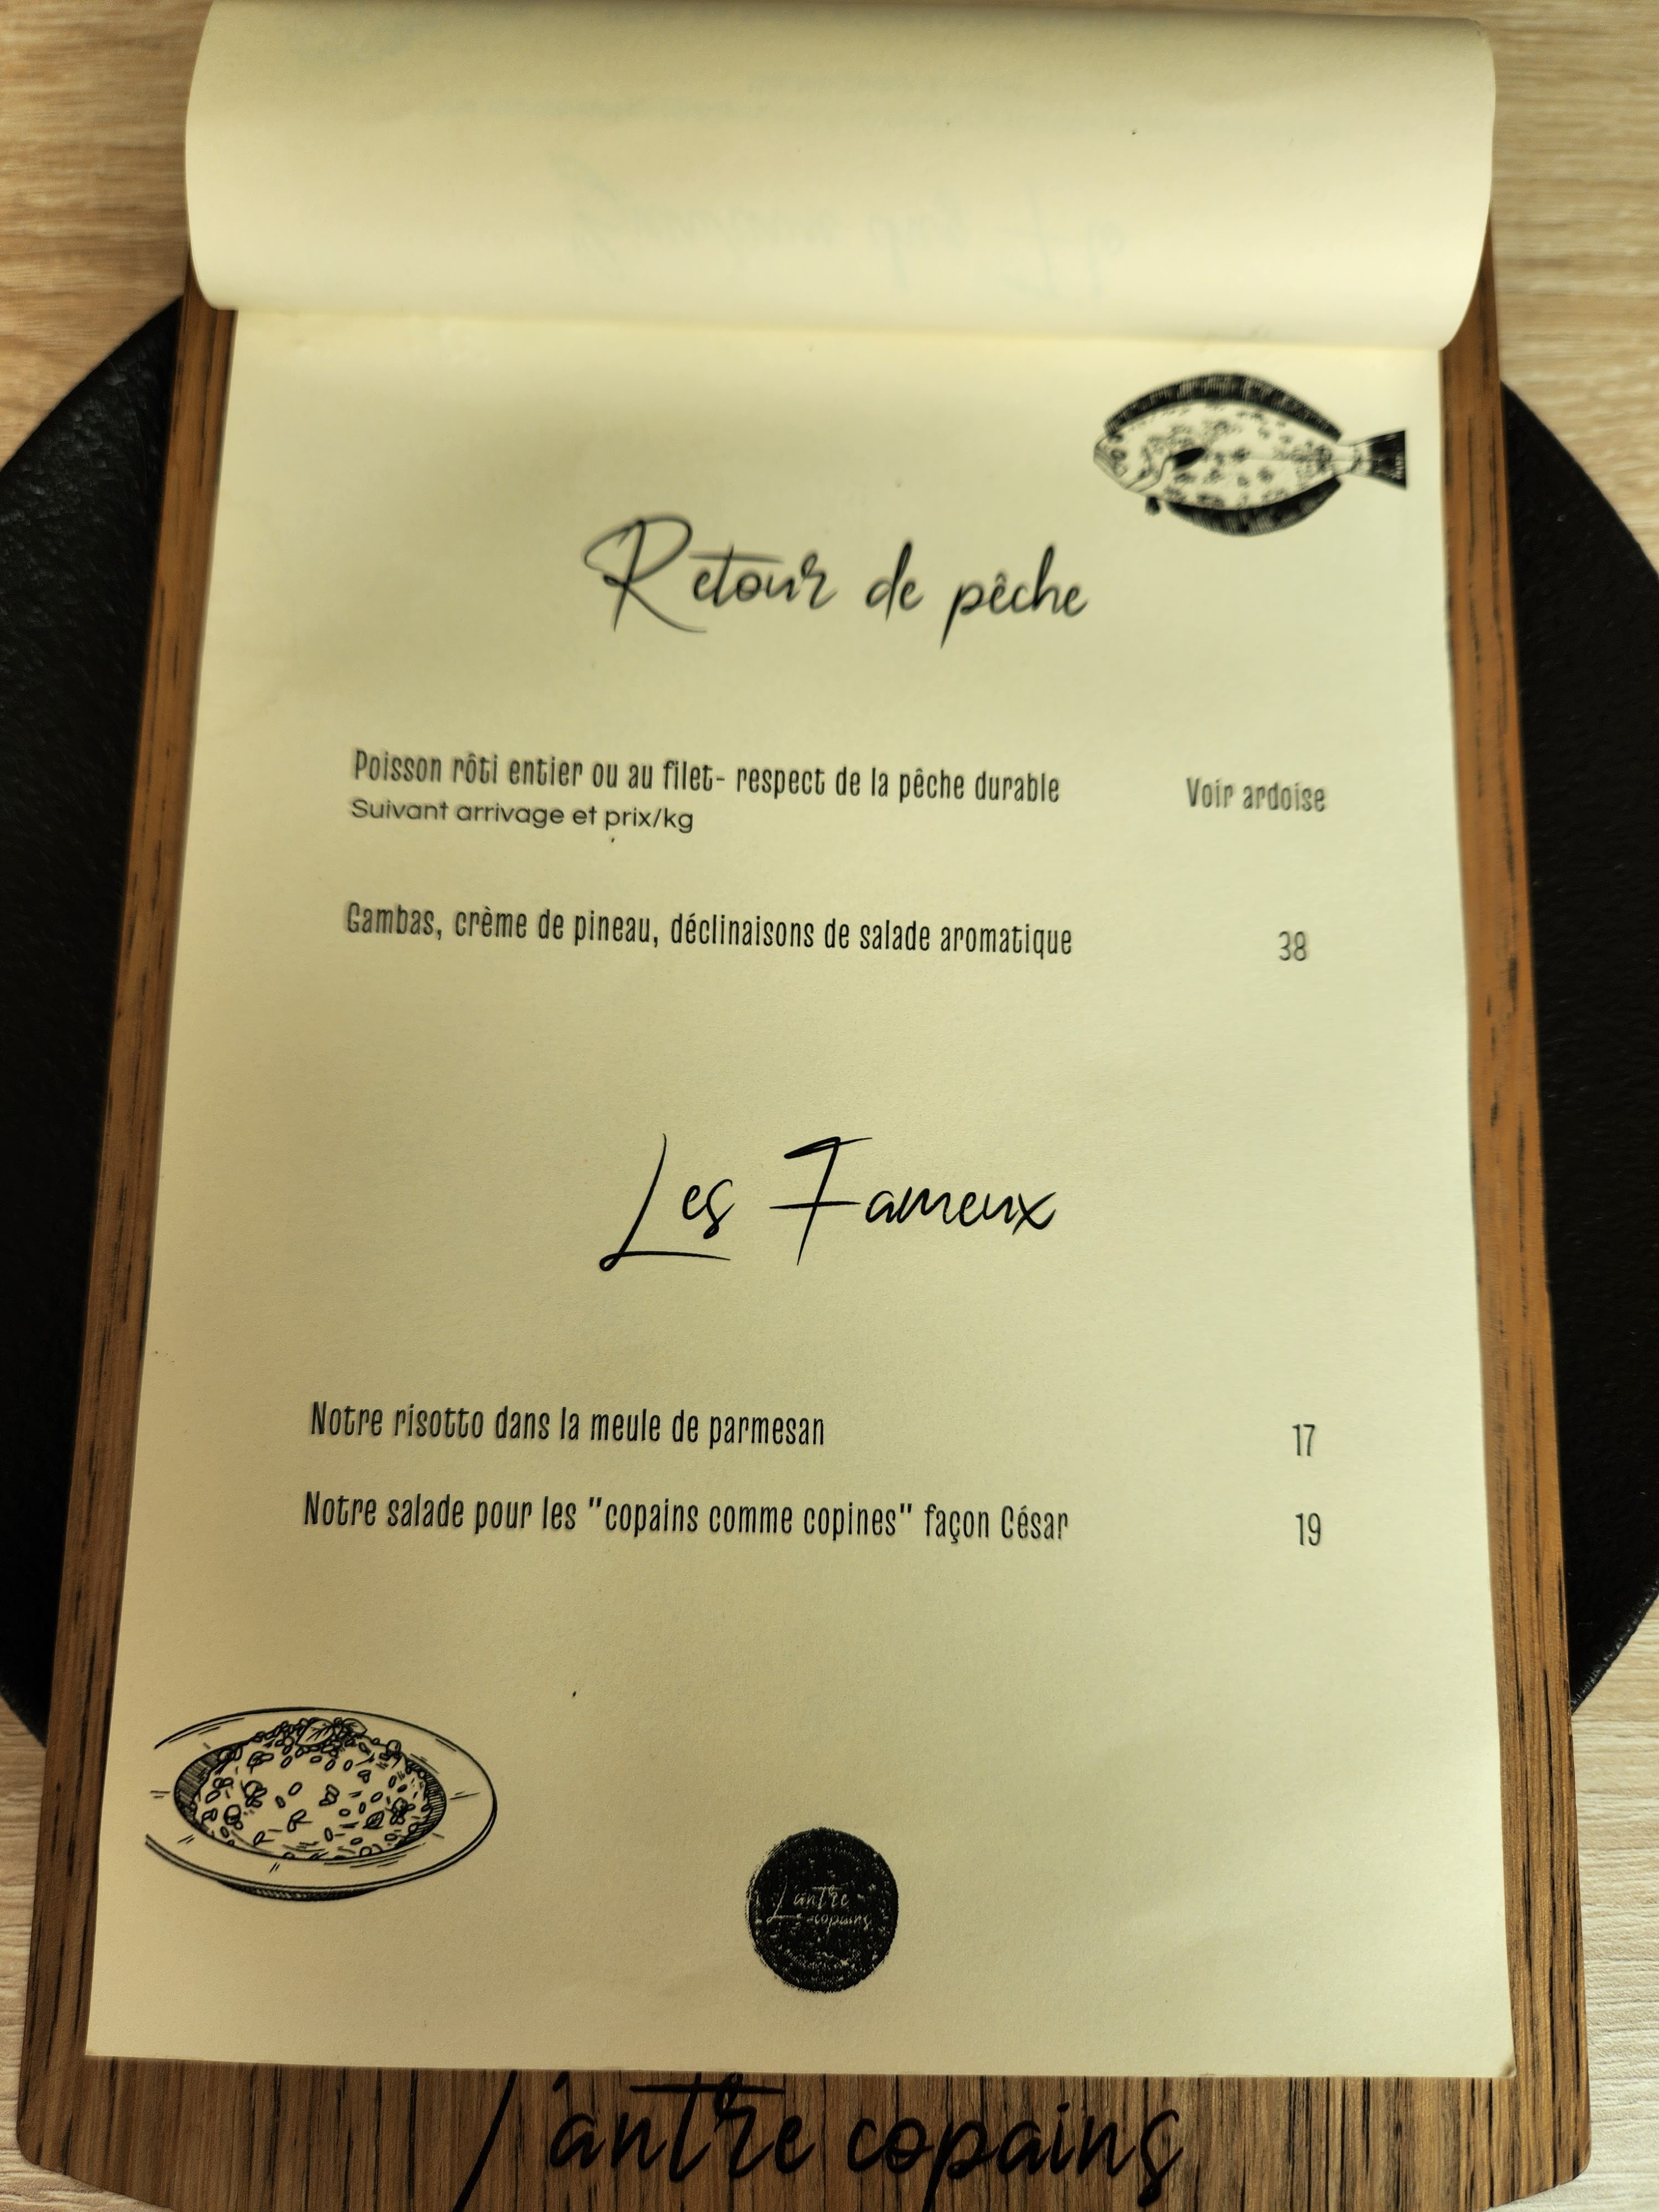 Retour de pêche
Poisson rôti entier ou au filet- respect de la pêche durable Voir ardoise
Suivant arrivage et prix/kg
Gambas, crème de pineau, déclinaisons de salade aromatique 38
Les Fameux
Notre risotto dans la meule de parmesan 17
Notre salade pour les "copains comme copines" façon César 19
L'antre
copains
l'antre copains